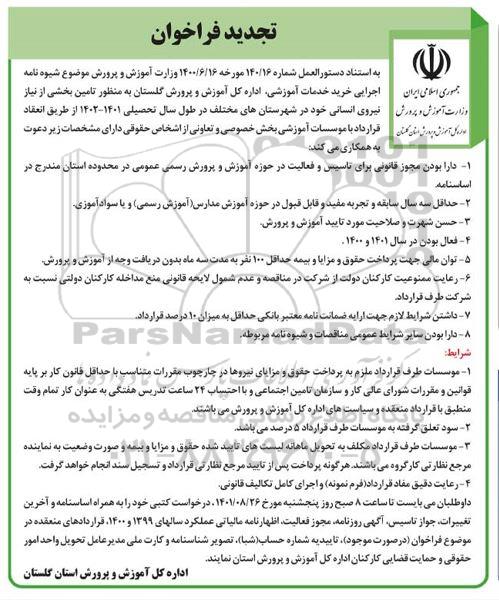 تجدید فراخوان
جمهوری اسلامی ایران
وزارت آموزش و پرورش
اداره کل آموزش و پرورش استان گلستان
به استناد دستورالعمل شماره ۱۴۰/۱۶ مورخه ۱۴۰۰/۶/۱۶ وزارت آموزش و پرورش موضوع شیوه نامه
اجرایی خرید خدمات آموزشی، اداره کل آموزش و پرورش گلستان به منظور تامین بخشی از نیاز
نیروی انسانی خود در شهرستان های مختلف در طول سال تحصیلی ۱۴۰۱-۱۴۰۲ از طریق انعقاد
قرارداد با موسسات آموزشی بخش خصوصی و تعاونی از اشخاص حقوقی دارای مشخصات زیر دعوت
به همکاری می کند:
۱- دارا بودن مجوز قانونی برای تاسیس و فعالیت در حوزه آموزش و پرورش رسمی عمومی در محدوده استان مندرج در
اساسنامه.
۲- حداقل سه سال سابقه و تجربه مفید و قابل قبول در حوزه آموزش مدارس (آموزش رسمی) و یا سوادآموزی.
۳- حسن شهرت و صلاحیت مورد تایید آموزش و پرورش.
۴- فعال بودن در سال ۱۴۰۱ و ۱۴۰۰ .
۵- توان مالی جهت پرداخت حقوق و مزایا و بیمه حداقل ۱۰۰ نفر به مدت سه ماه بدون دریافت وجه از آموزش و پرورش.
۶- رعایت ممنوعیت کارکنان دولت از شرکت در مناقصه و عدم شمول لایحه قانونی منع مداخله کارکنان دولتی نسبت به
شرکت طرف قرارداد.
۷- داشتن شرایط لازم جهت ارایه ضمانت نامه معتبر بانکی حداقل به میزان ۱۰ درصد قرارداد.
۸- دارا بودن سایر شرایط عمومی مناقصات و شیوه نامه مربوطه.
شرایط:
۱- موسسات طرف قرارداد ملزم به پرداخت حقوق و مزایای نیروها در چارچوب مقررات متناسب با حداقل قانون کار بر پایه
قوانین و مقررات شورای عالی کار و سازمان تامین اجتماعی و با احتساب ۲۴ ساعت تدریس هفتگی به عنوان کار تمام وقت
منطبق با قرارداد منعقده و سیاست های اداره کل آموزش و پرورش می باشند.
۲- سود تعلق گرفته به موسسات طرف قرارداد ۵ درصد می باشد.
۳- موسسات طرف قرارداد مکلف به تحویل ماهانه لیست های تایید شده حقوق و مزایا و بیمه و صورت وضعیت به نماینده
مرجع نظارتی کارگروه می باشند. هرگونه پرداخت پس از تایید مرجع نظارتی قرارداد و تسجیل سند انجام خواهد گرفت.
۴- رعایت دقیق مفاد قرارداد (فرم نمونه) و اجرای کامل تکالیف قانونی.
داوطلبان می بایست تا ساعت ۸ صبح روز پنجشنبه مورخ ۱۴۰۱/۰۸/۲۶، درخواست کتبی خود را به همراه اساسنامه و آخرین
تغییرات، جواز تاسیس، آگهی روزنامه، مجوز فعالیت، اظهارنامه مالیاتی عملکرد سالهای ۱۳۹۹ و ۱۴۰۰، قراردادهای منعقده در
موضوع فراخوان (درصورت موجود)، تاییدیه شماره حساب (شبا)، تصویر شناسنامه و کارت ملی مدیرعامل تحویل واحد امور
حقوقی و حمایت قضایی کارکنان اداره کل آموزش و پرورش استان نمایند.
اداره کل آموزش و پرورش استان گلستان